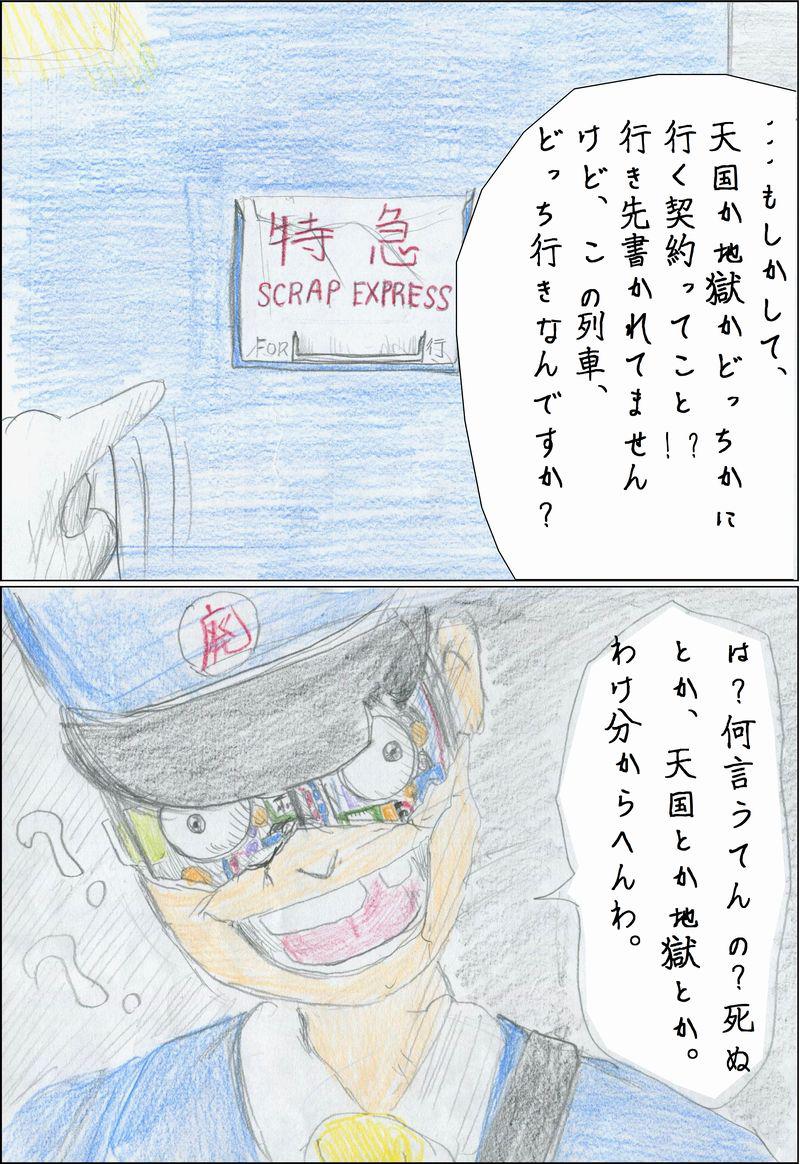 ・・・もしかして、
天国か地獄かどっちかに
行く契約ってこと！？
行き先書かれてません
けど、この列車、
どっち行きなんですか？
特急
SCRAP EXPRESS
FOR 行
は？何言うてんの？死ぬ
とか、天国とか地獄とか。
わけ分からへんわ。
廃
？
？